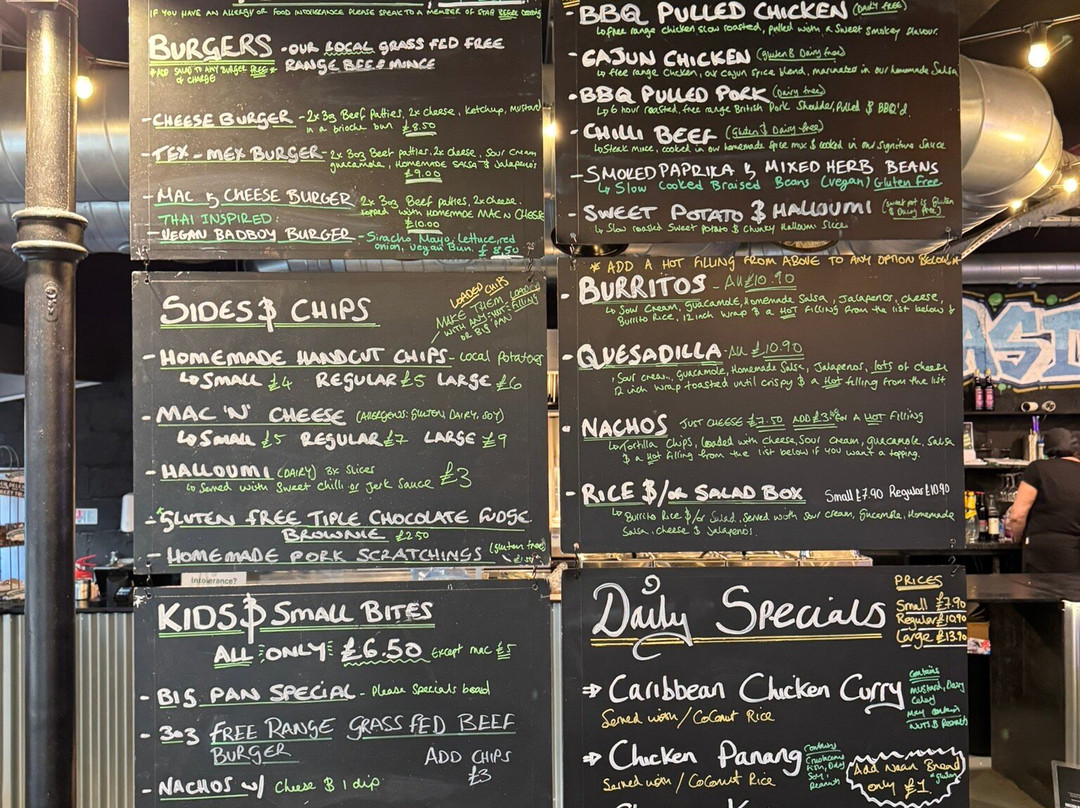 IF YOU HAVE AN ALLERGY OR FOOD INTOLERANCE PLEASE SPEAK TO A MEMBER OF STAFF BEFORE ORDERING
BURGERS - OUR LOCAL GRASS FED FREE
RANGE BEEF MINCE
* ADD SALAD TO ANY BURGER FREE *
OF CHARGE
- CHEESE BURGER - 2x 3oz Beef Patties, 2x cheese, ketchup, mustard
in a brioche bun £8.50
- TEX-MEX BURGER - 2x 3oz Beef patties, 2x cheese, sour cream
guacamole, Homemade salsa & Jalapenos
£9.00
- MAC & CHEESE BURGER 2x 3oz Beef patties, 2x cheese.
topped with Homemade MAC N CHEESE
£10.00
THAI INSPIRED:
- VEGAN BADBOY BURGER - Siracha Mayo, Lettuce, red
onion, Vegan Bun. £8.50
SIDES & CHIPS
LOADED CHIPS
MAKE THEM LOADED
WITH ANY HOT FILLING
OR BIG PAN
- HOMEMADE HANDCUT CHIPS - Local Potatoes
SMALL £4 REGULAR £5 LARGE £6
- MAC 'N' CHEESE (ALLERGENS: GLUTEN, DAIRY, SOY)
SMALL £5 REGULAR £7 LARGE £9
- HALLOUMI (DAIRY) 3x Slices £3
Served with Sweet chilli or Jerk Sauce
- GLUTEN FREE TIPLE CHOCOLATE FUDGE
BROWNIE £2.50
- HOMEMADE PORK SCRATCHINGS (gluten free)
£1.50
Intolerance?
KIDS & SMALL BITES
ALL ONLY £6.50 Except mac £5
- BIG PAN SPECIAL - Please Specials board
- 3oz FREE RANGE GRASS FED BEEF
BURGER ADD CHIPS
£3
- NACHOS w/ Cheese & 1 dip
- BBQ PULLED CHICKEN (Dairy free)
free range chicken slow roasted, pulled with a Sweet Smokey flavour.
- CAJUN CHICKEN (gluten & Dairy free)
free range Chicken, our cajun spice blend, marinated in our homemade Salsa
- BBQ PULLED PORK (Dairy free)
6 hour roasted, free range British Pork Shoulder, Pulled & BBQ'd.
- CHILLI BEEF (Gluten & Dairy free)
Steak mince, cooked in our homemade spice mix & cooked in our Signature Sauce
- SMOKED PAPRIKA & MIXED HERB BEANS
Slow Cooked Braised Beans (Vegan) Gluten Free
- SWEET POTATO & HALLOUMI (sweet pot is Gluten
& Dairy free)
Slow roasted Sweet Potato & Chunky Halloumi Slice
* ADD A HOT FILLING FROM ABOVE TO ANY OPTION BELOW *
- BURRITOS - All £10.90
Sour Cream, Guacamole, Homemade Salsa, Jalapenos, cheese,
Burrito Rice, 12 inch Wrap & a HOT Filling from the list below &
- QUESADILLA - ALL £10.90
Sour cream, Guacamole, Homemade Salsa, Jalapenos, lots of cheese
12 inch wrap toasted until crispy & a Hot filling from the list
- NACHOS JUST CHEESE £7.50 ADD £3.40 for A HOT FILLING
Tortilla Chips, loaded with cheese, Sour Cream, guacamole, Salsa
& a Hot filling from the list below if you want a topping.
- RICE &/or SALAD BOX Small £7.90 Regular £10.90
Burrito Rice &/or Salad, Served with Sour cream, Guacamole, Homemade
Salsa, cheese & Jalapenos.
Daily Specials
PRICES
Small £7.90
Regular £10.90
Large £13.90
⇒ Caribbean Chicken Curry
Served with / Coconut Rice
Contains
Mustard, Dairy
Celery
May contain
Nuts & Peanuts
⇒ Chicken Panang
Served with / Coconut Rice
Contains
Crustaceans
Fish, Dairy
Soy,
Peanuts
Add Naan Bread
only £1 *gluten